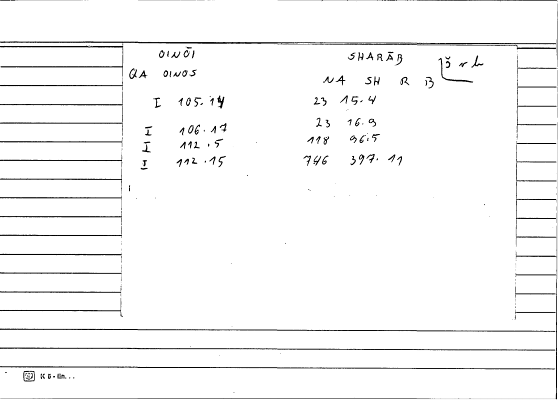 OINŌI SHARĀB
QA OINOS NA SH R B š r b
I 105.14 23 15.4
I 106.17 23 16.9
I 112.5 118 96.5
I 112.15 746 397.11